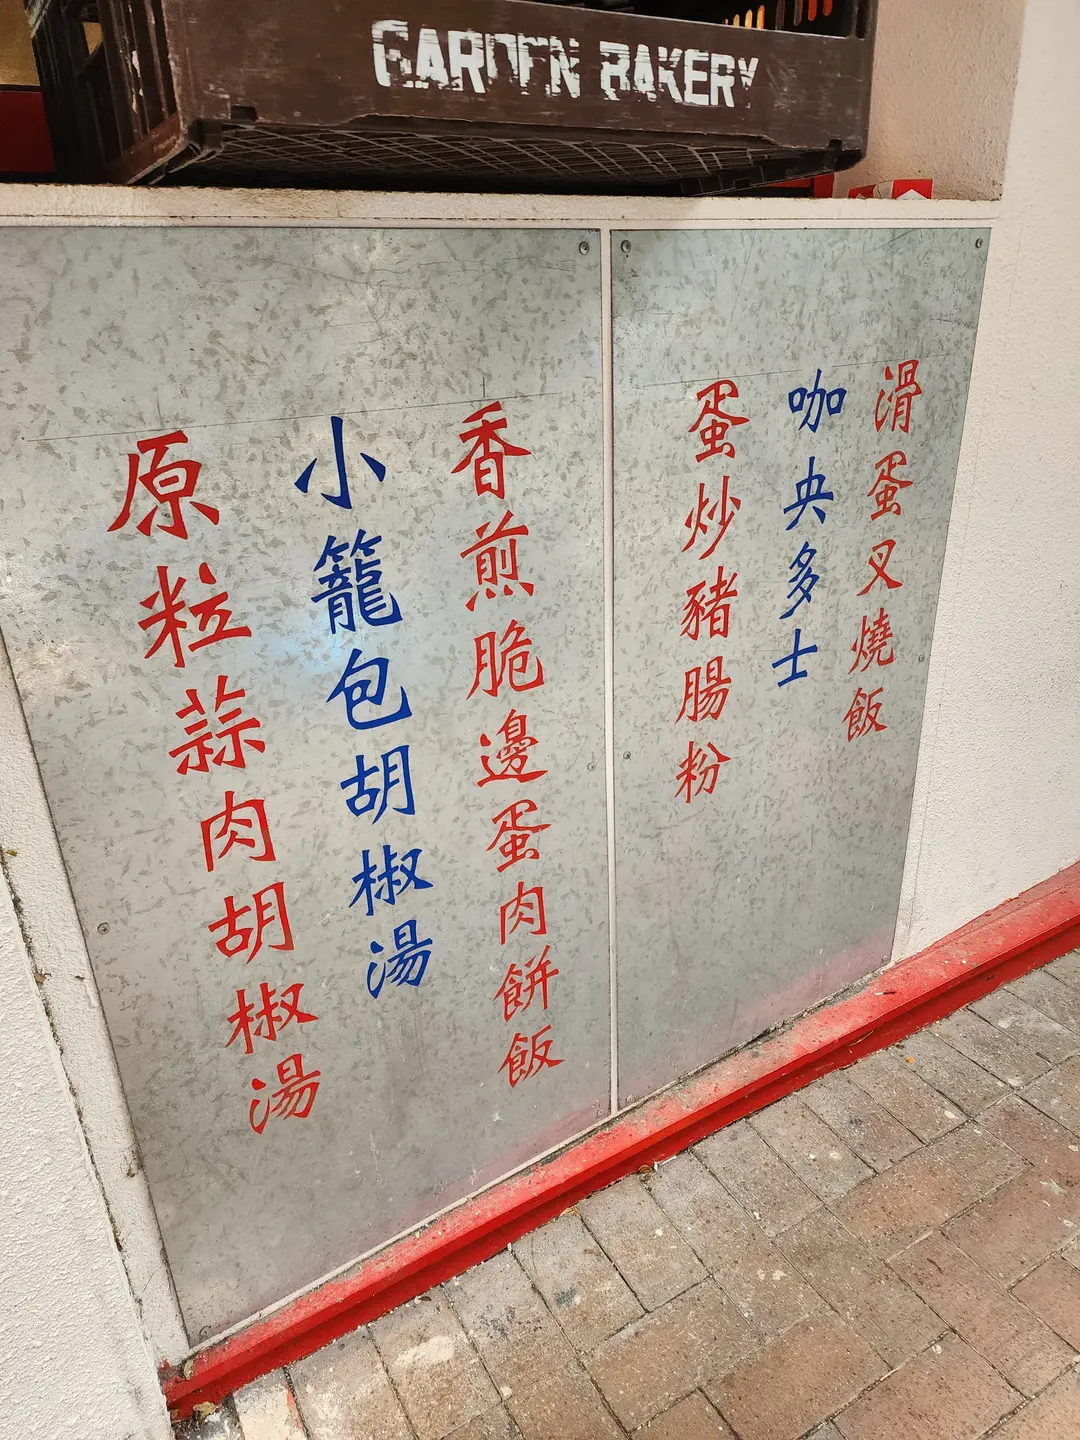 GARDEN BAKERY
滑蛋叉燒飯
咖央多士
蛋炒豬腸粉
香煎脆邊蛋肉餅飯
小籠包胡椒湯
原粒蒜肉胡椒湯